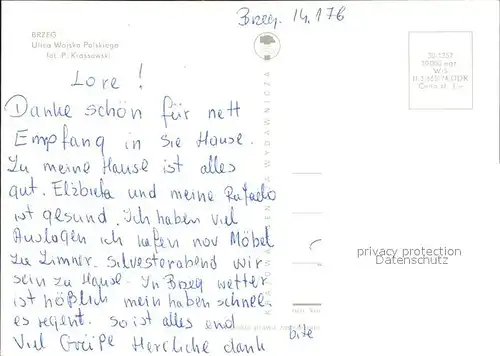 Brzeg. 14.1 76
BRZEG
Ulica Wojska Polskiego
fot. P. Krassowski
Lore!
Danke schön für nett
Empfang in Sie Hause.
Zu meine Hause ist alles
gut. Elżbieta und meine Rafaelo
ist gesund. Ich haben viel
Auslogen ich kafen nov Möbel
zu Zimner. Silvesterabend wir
sein zu Hause. In Brzeg wetter
ist höflich mein haben schnee.
es regent. So ist alles end
Viel Grüße Herzliche dank
bite
KRAJOWA AGENCJA WYDAWNICZA
privacy protection
Datenschutz